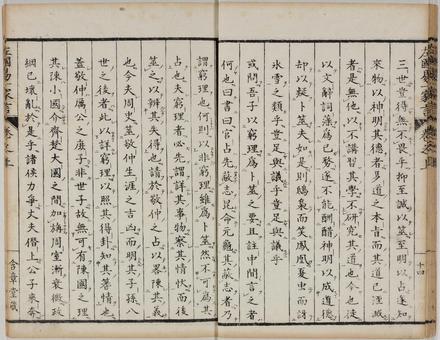 三世豈得無不畏乎抑至誠以筮至明以占逐知
來物以神明其德者易道之本旨而其道已湮滅
者是無他以不講習其學不研究其道也今也徒
以文辭詞藻爲已發遂不能酬酢神明以成道德
却以疑卜筮夫如是則鷦梟而笑鳳凰夏虫而訝
氷雪之類乎豈足與議乎豈足與議乎
或問吾子以窮理爲卜筮之要且註中間言之者
何也曰書曰官占先蔽志昆命元龜其蔽志者乃
謂窮理也何則以非窮理雖爲卜筮然不可爲其
占也夫窮理者必先謂詳其事物察其情狀而後
筮之以辨其失得也請於敬仲之占以畧陳其義
也今夫周史筮敬仲生涯之吉凶而明其子孫八
世之後者此以詳窮理以照其得卦知其蓍情也
蓋敬仲厲公之庶子非世子故無可有陳國之理
其陳小國介齊楚大國之間加旃周室漸衰微政
綱已壞亂於是乎諸侯力爭丈夫僭上公子來奔
左國易一家言 卷之上
含章堂藏
十四